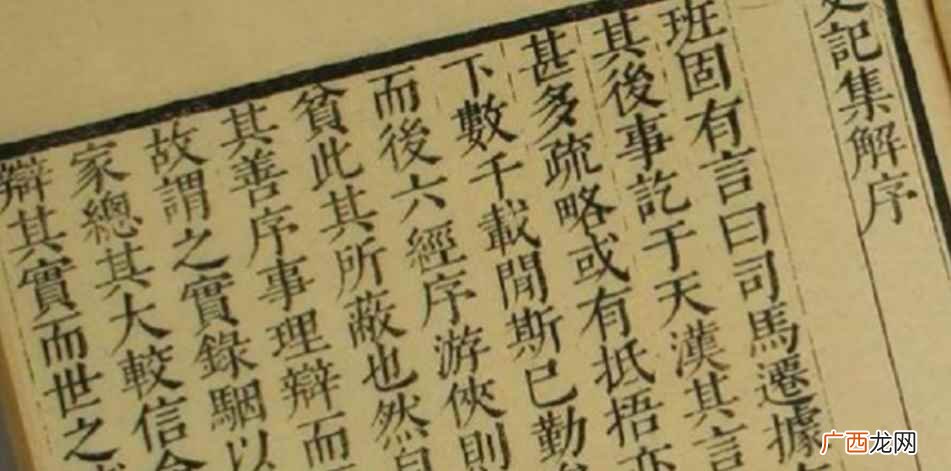 史記集解序
班固有言曰司馬遷據
其後事訖于天漢其言
甚多疏略或有抵捂亦
下數千載閒斯已勤矣
而後六經序游俠則
貧此其所蔽也然自
其善序事理辯而
故謂之實錄駰以
家總其大較信命
辯其實而世之
广西龙网